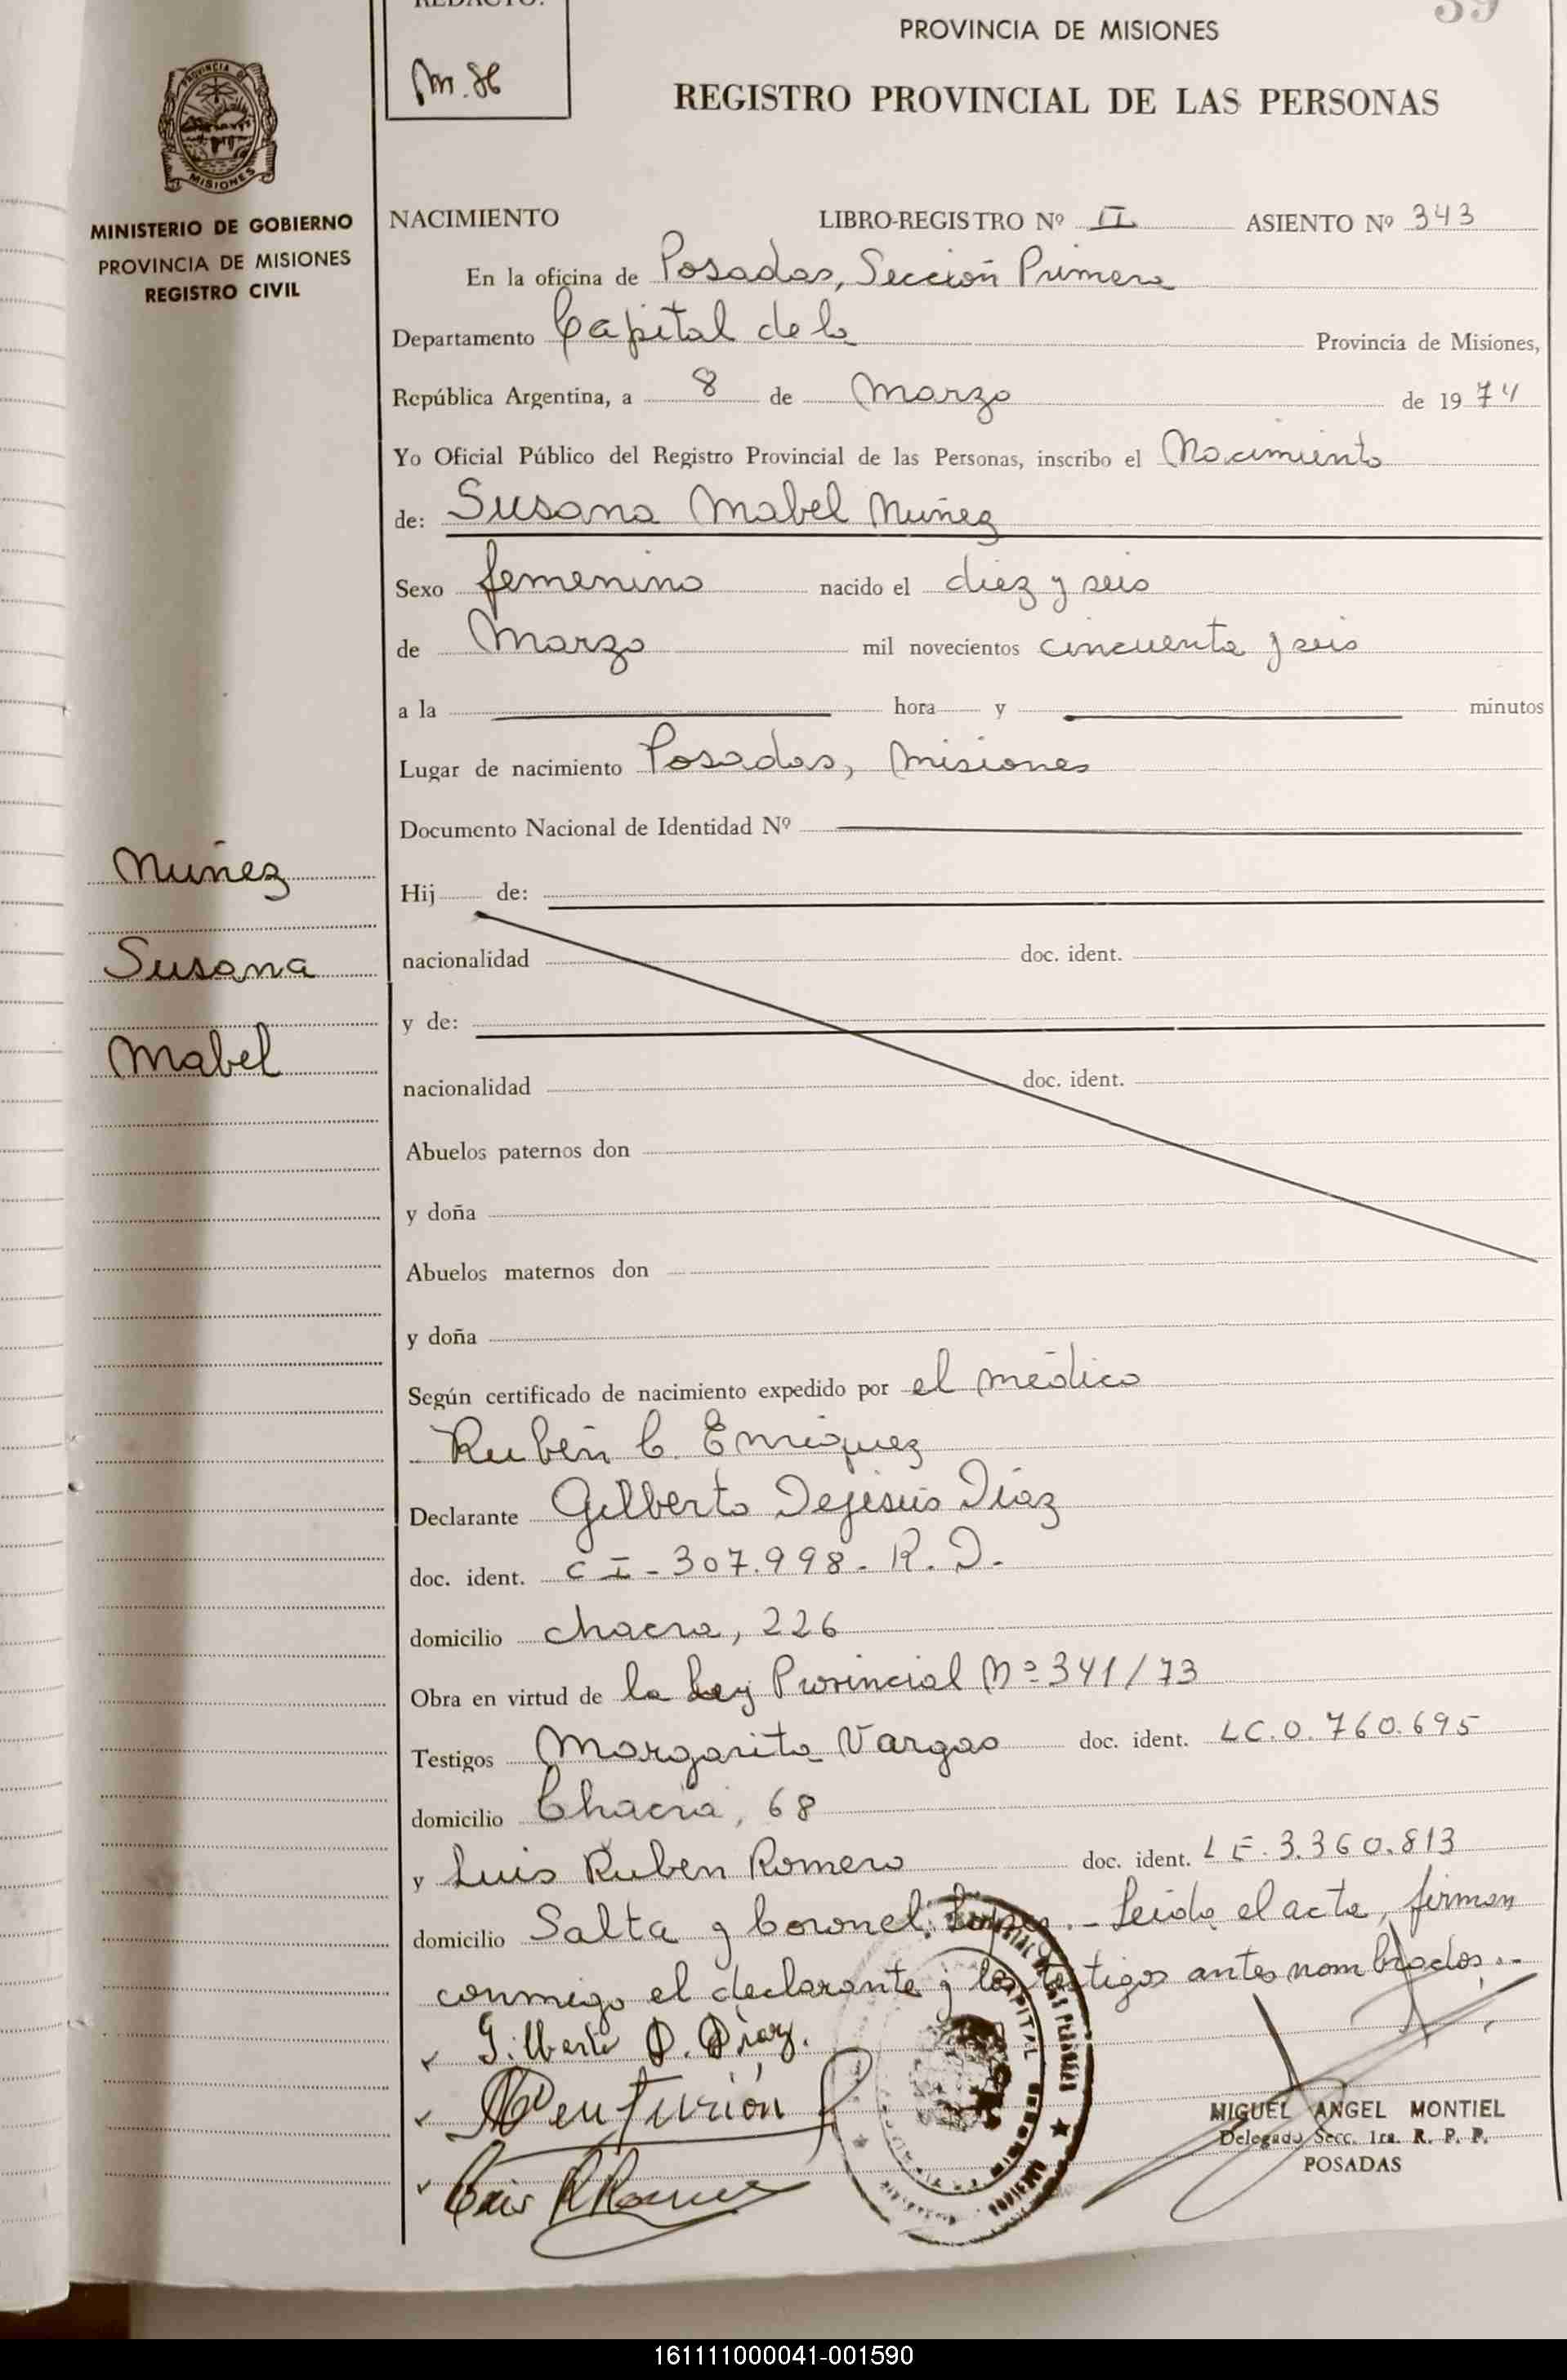 REDACTO:
M. H
39
PROVINCIA DE MISIONES
REGISTRO PROVINCIAL DE LAS PERSONAS
PROVINCIA DE
MISIONES
MINISTERIO DE GOBIERNO
PROVINCIA DE MISIONES
REGISTRO CIVIL
NACIMIENTO LIBRO-REGISTRO Nº II ASIENTO Nº 343
En la oficina de Posadas, Sección Primera
Departamento Capital de la Provincia de Misiones,
República Argentina, a 8 de Marzo de 1974
Yo Oficial Público del Registro Provincial de las Personas, inscribo el Nacimiento
de: Susana Mabel Nuñez
Sexo femenino nacido el diez y seis
de Marzo mil novecientos cincuenta y seis
a la hora y minutos
Lugar de nacimiento Posadas, Misiones
Documento Nacional de Identidad Nº
Nuñez
Susana
Mabel
Hij de:
nacionalidad doc. ident.
y de:
nacionalidad doc. ident.
Abuelos paternos don
y doña
Abuelos maternos don
y doña
Según certificado de nacimiento expedido por el médico
Rubén C. Enriquez
Declarante Gilberto Dejesús Díaz
doc. ident. C I - 307.998 - R. D.
domicilio chacra, 226
Obra en virtud de la Ley Provincial Nº 341/73
Testigos Margarita Vargas doc. ident. LC. 0.760.695
domicilio Chacra, 68
y Luis Ruben Romero doc. ident. LE. 3.360.813
domicilio Salta y Coronel López. - Leída el acta, firman
conmigo el declarante y los testigos antes nombrados. -
Gilberto D. Díaz.
MIGUEL ANGEL MONTIEL
Delegado Secc. 1ra. R. P. P.
POSADAS
161111000041-001590